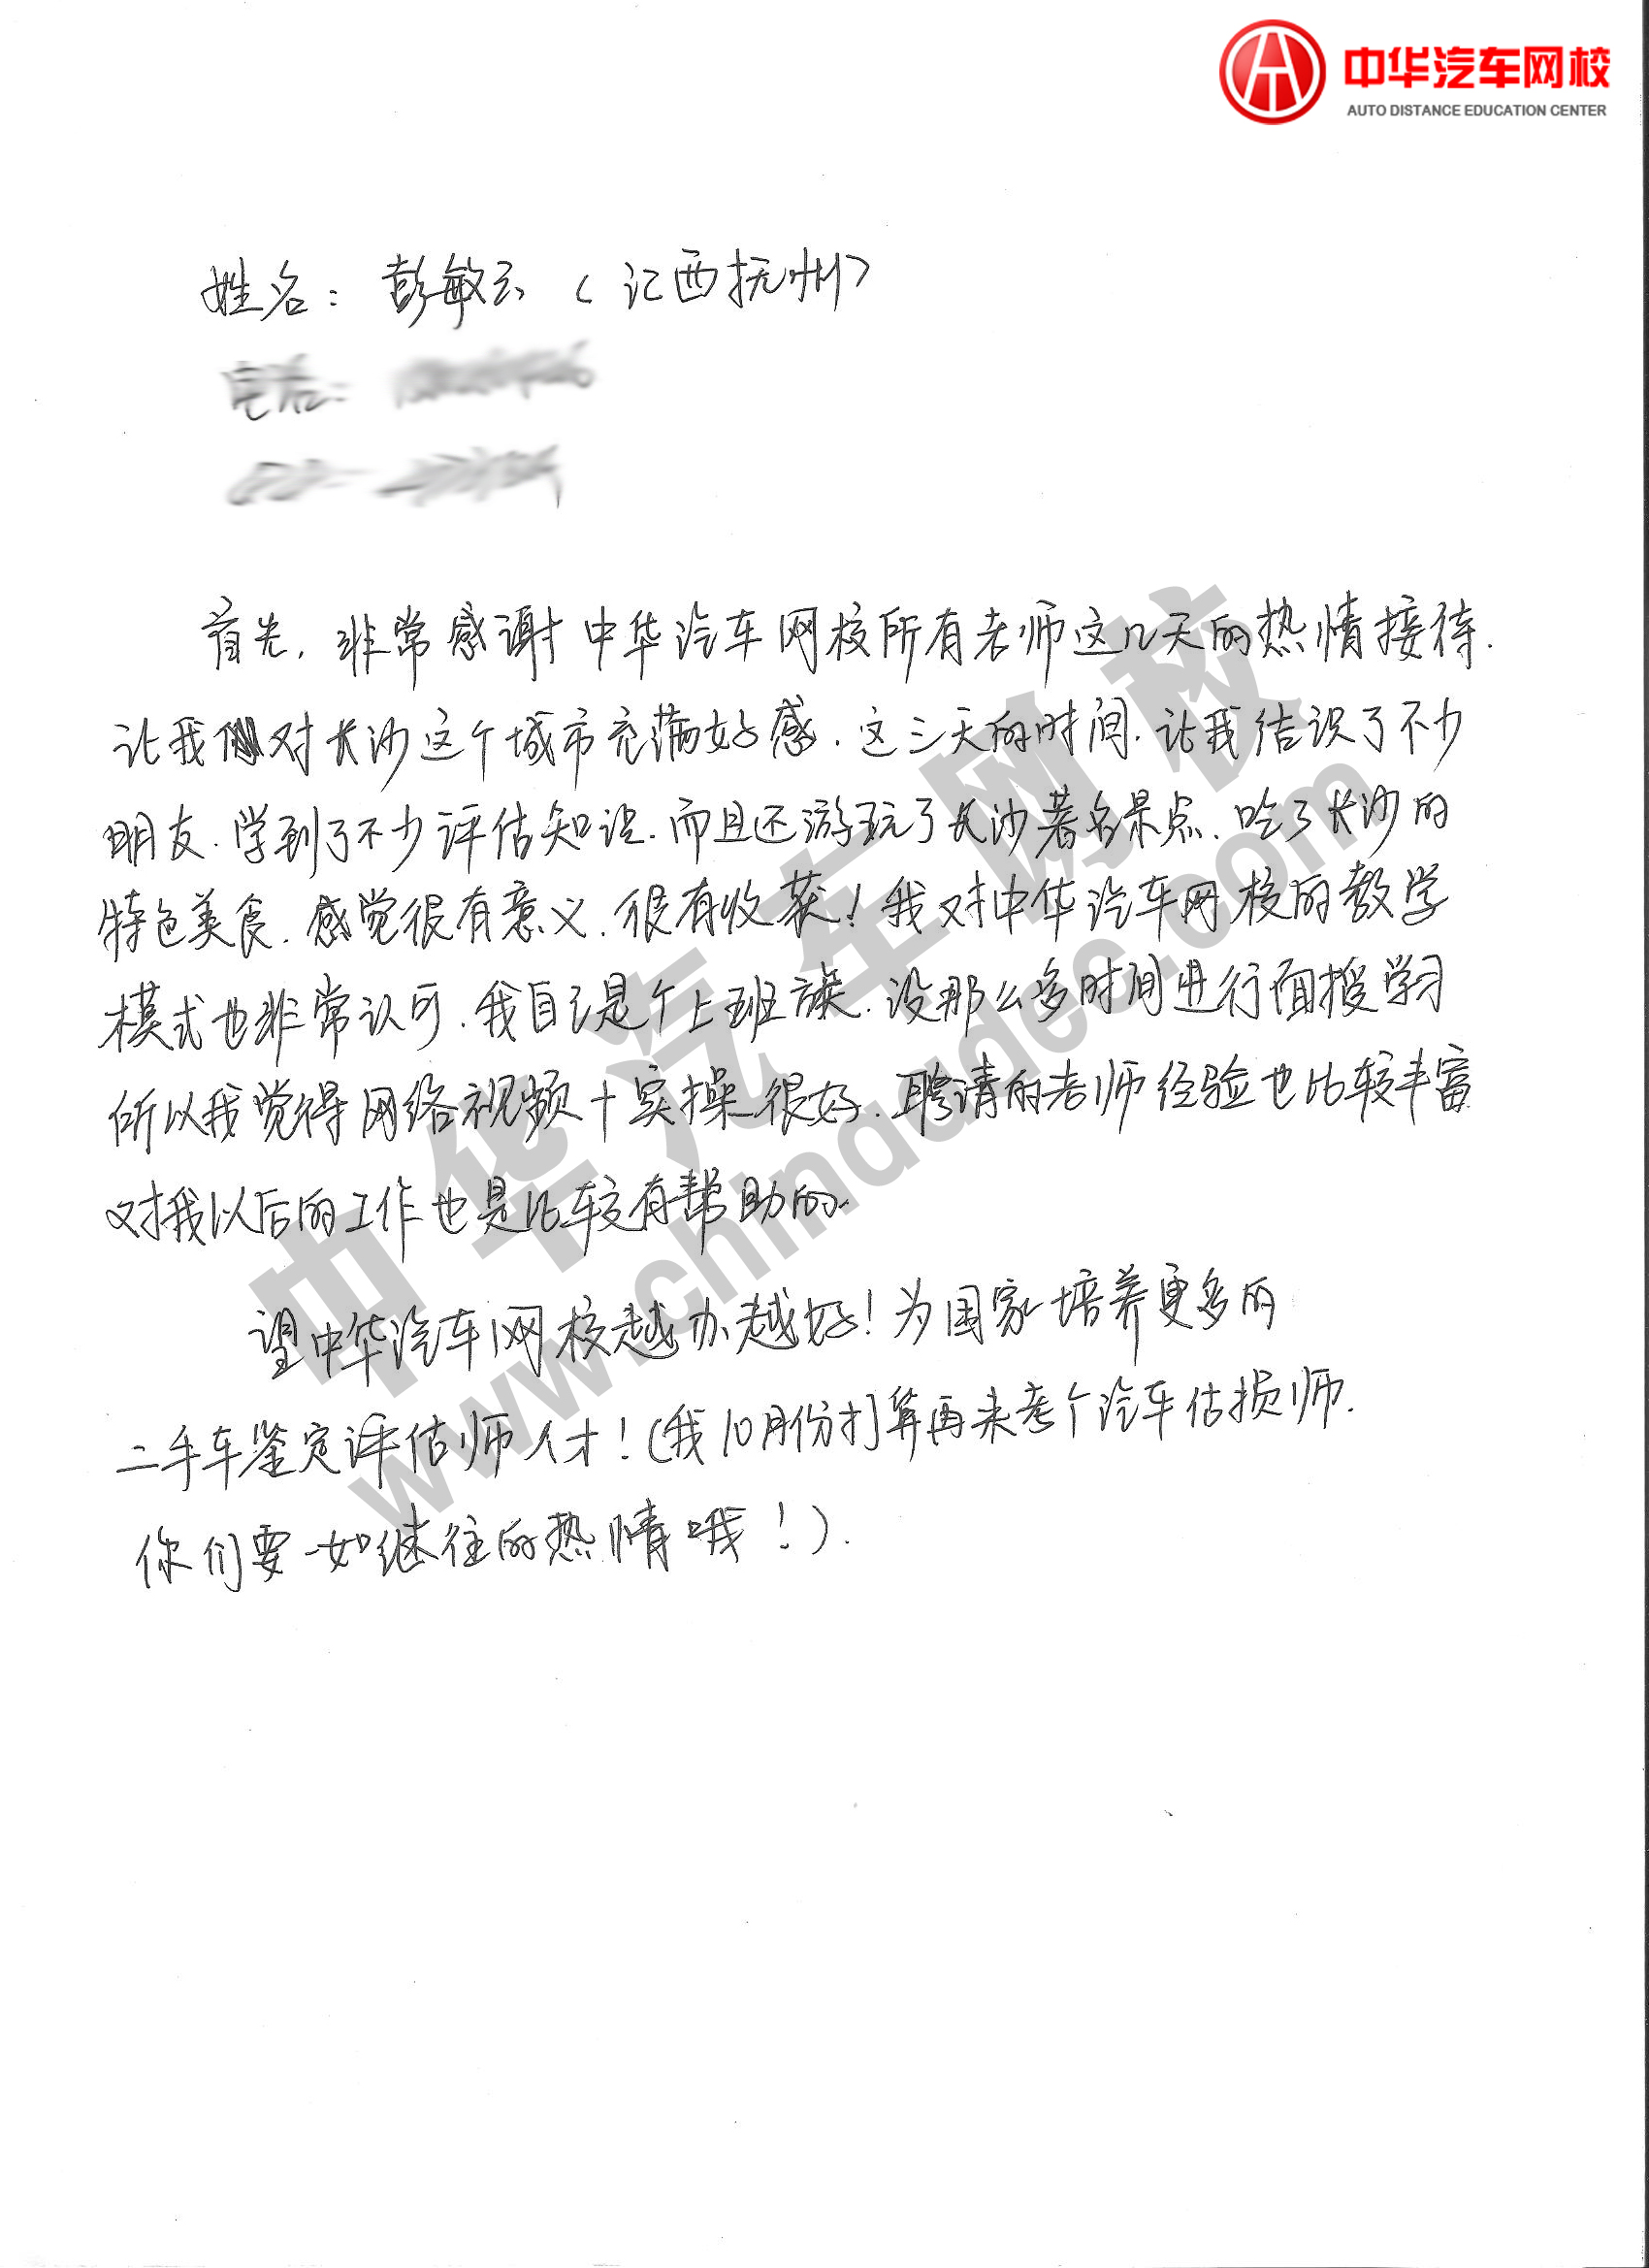 中华汽车网校
AUTO DISTANCE EDUCATION CENTER
姓名：彭敏云（江西抚州）
首先，非常感谢中华汽车网校所有老师这几天的热情接待.
让我对长沙这个城市充满好感.这三天的时间.让我结识了不少
朋友.学到了不少评估知识.而且还游玩了长沙著名景点、吃了长沙的
特色美食.感觉很有意义.很有收获！我对中华汽车网校的教学
模式也非常认可.我自己是个上班族.没那么多时间进行面授学习
所以我觉得网络视频+实操很好.聘请的老师经验也比较丰富
对我以后的工作也是比较有帮助的.
望中华汽车网校越办越好！为国家培养更多的
二手车鉴定评估师人才！(我10月份打算再来考个汽车估损师.
你们要一如继往的热情哦！).
中华汽车网校
www.chinadec.com